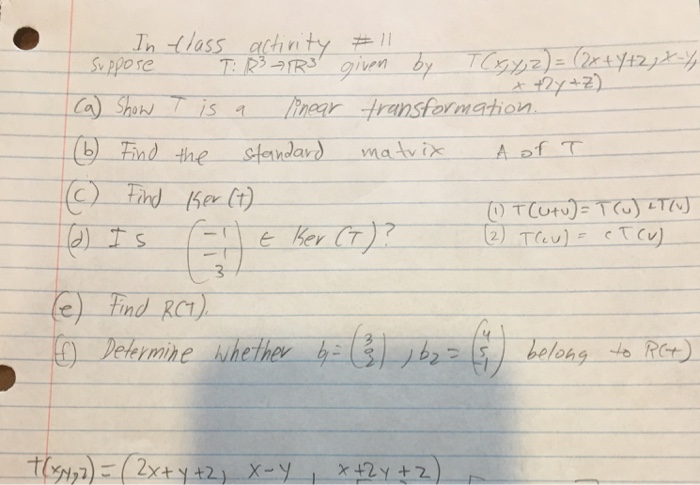 In class activity #11
Suppose T: R³→R³ given by T(x,y,z) = (2x+y+z, x-y,
x+2y+z)
(a) Show T is a linear transformation.
(b) Find the standard matrix A of T
(c) Find Ker(T)
(1) T(u+v) = T(u) + T(v)
(d) Is (-1 -1 3) ∈ Ker (T)?
(2) T(cu) = c T(u)
(e) Find R(T).
(f) Determine whether b₁ = (3 0 3), b₂ = (4 5 -1) belong to R(T)
T(x,y,z) = (2x+y+z, x-y, x+2y+z)